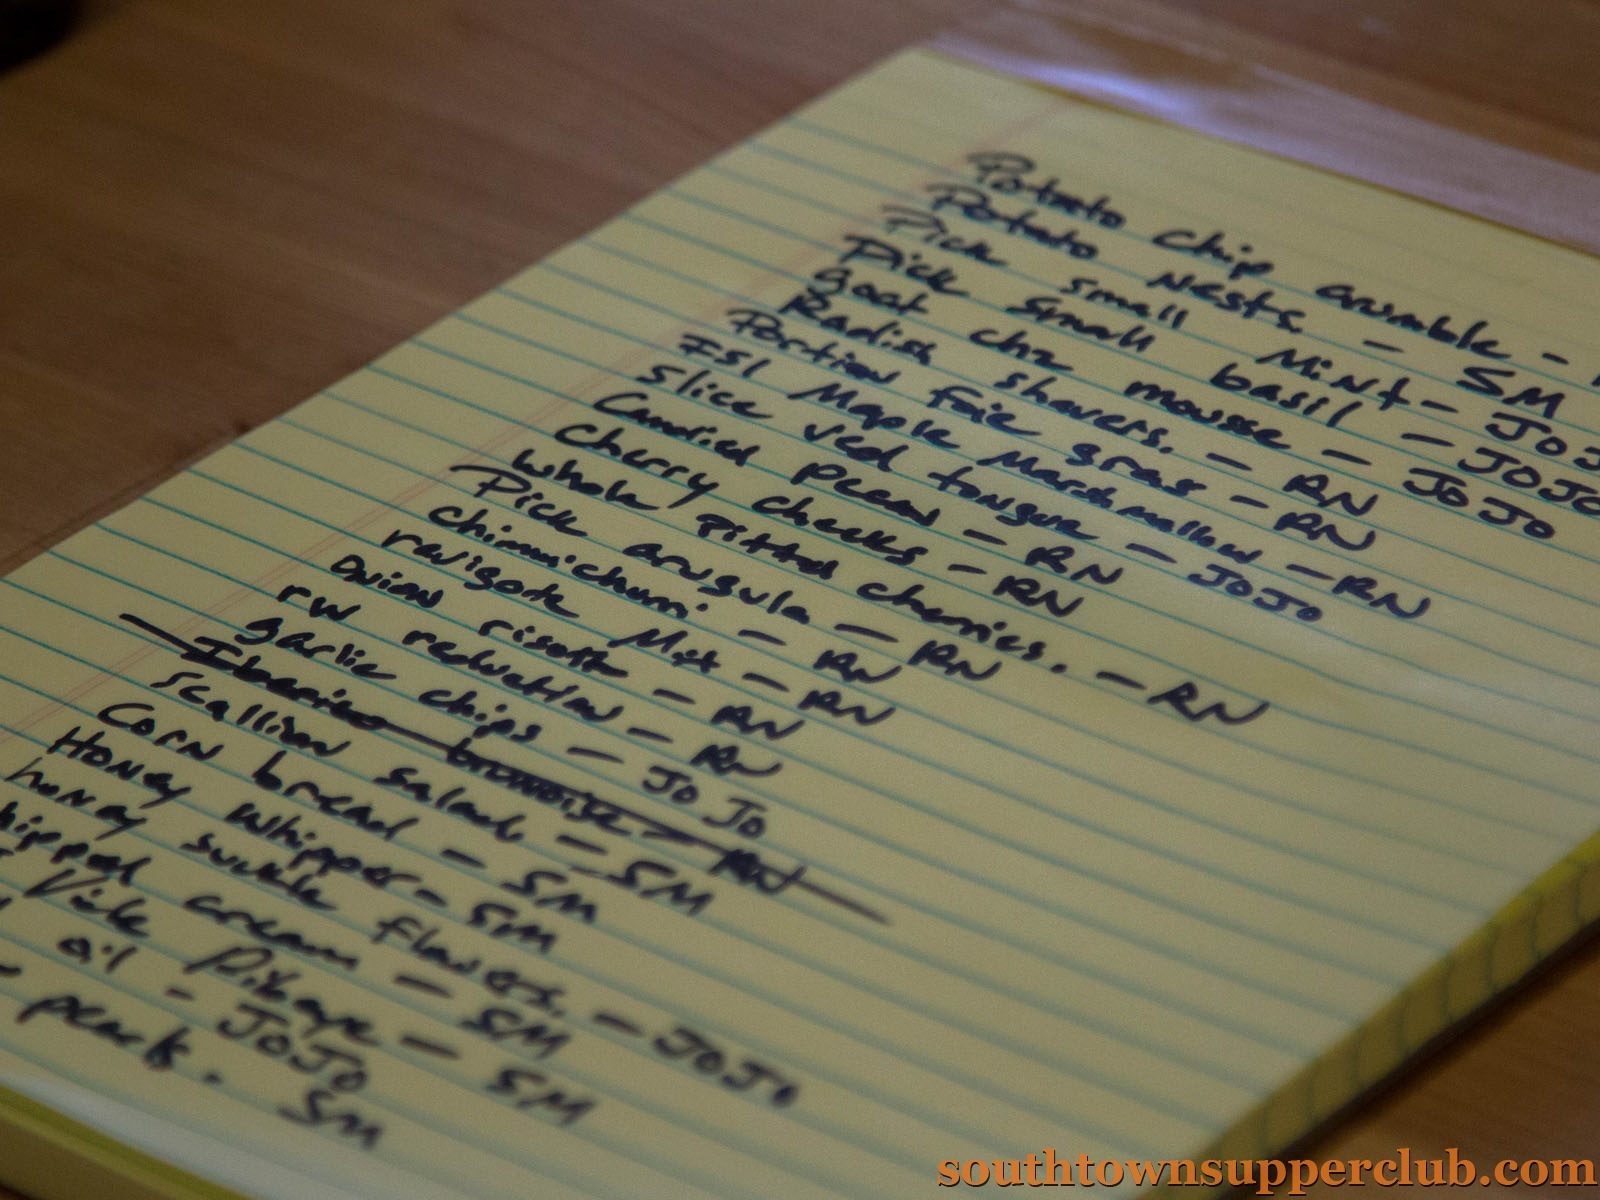 Potato Chip crumble -
Potato Nests - SM
Pick small Mint - JOJ
Pick small basil - JOJO
goat chz mousse - JOJO
Radish shavers. - RN
Portion foie gras - RN
ISI Maple Marshmallow - RN
Slice veal tongue - JOJO
Candied pecan - RN
Cherry cheeks - RN
whole pitted cherries. - RN
Pick arugula - RN
chimmichurri - RN
ravigote Mix - RN
Onion risott - RN
rw reduction - RN
garlic chips - JoJo
Iberico brunoise - RN
scallion salad. - SM
Corn bread - SM
Honey whipper - SM
honey suckle flowers. - JOJO
hipped cream - SM
Pick Pibage - SM
oil - JOJO
pearls. SM
southtownsupperclub.com